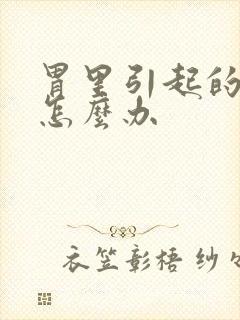 胃里引起的
怎麼办
衣笠彰梧 纱々